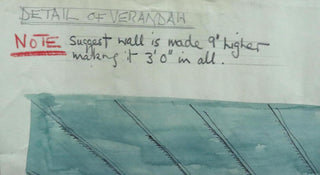 DETAIL OF VERANDAH
NOTE Suggest wall is made 9" higher
making it 3'0" in all.